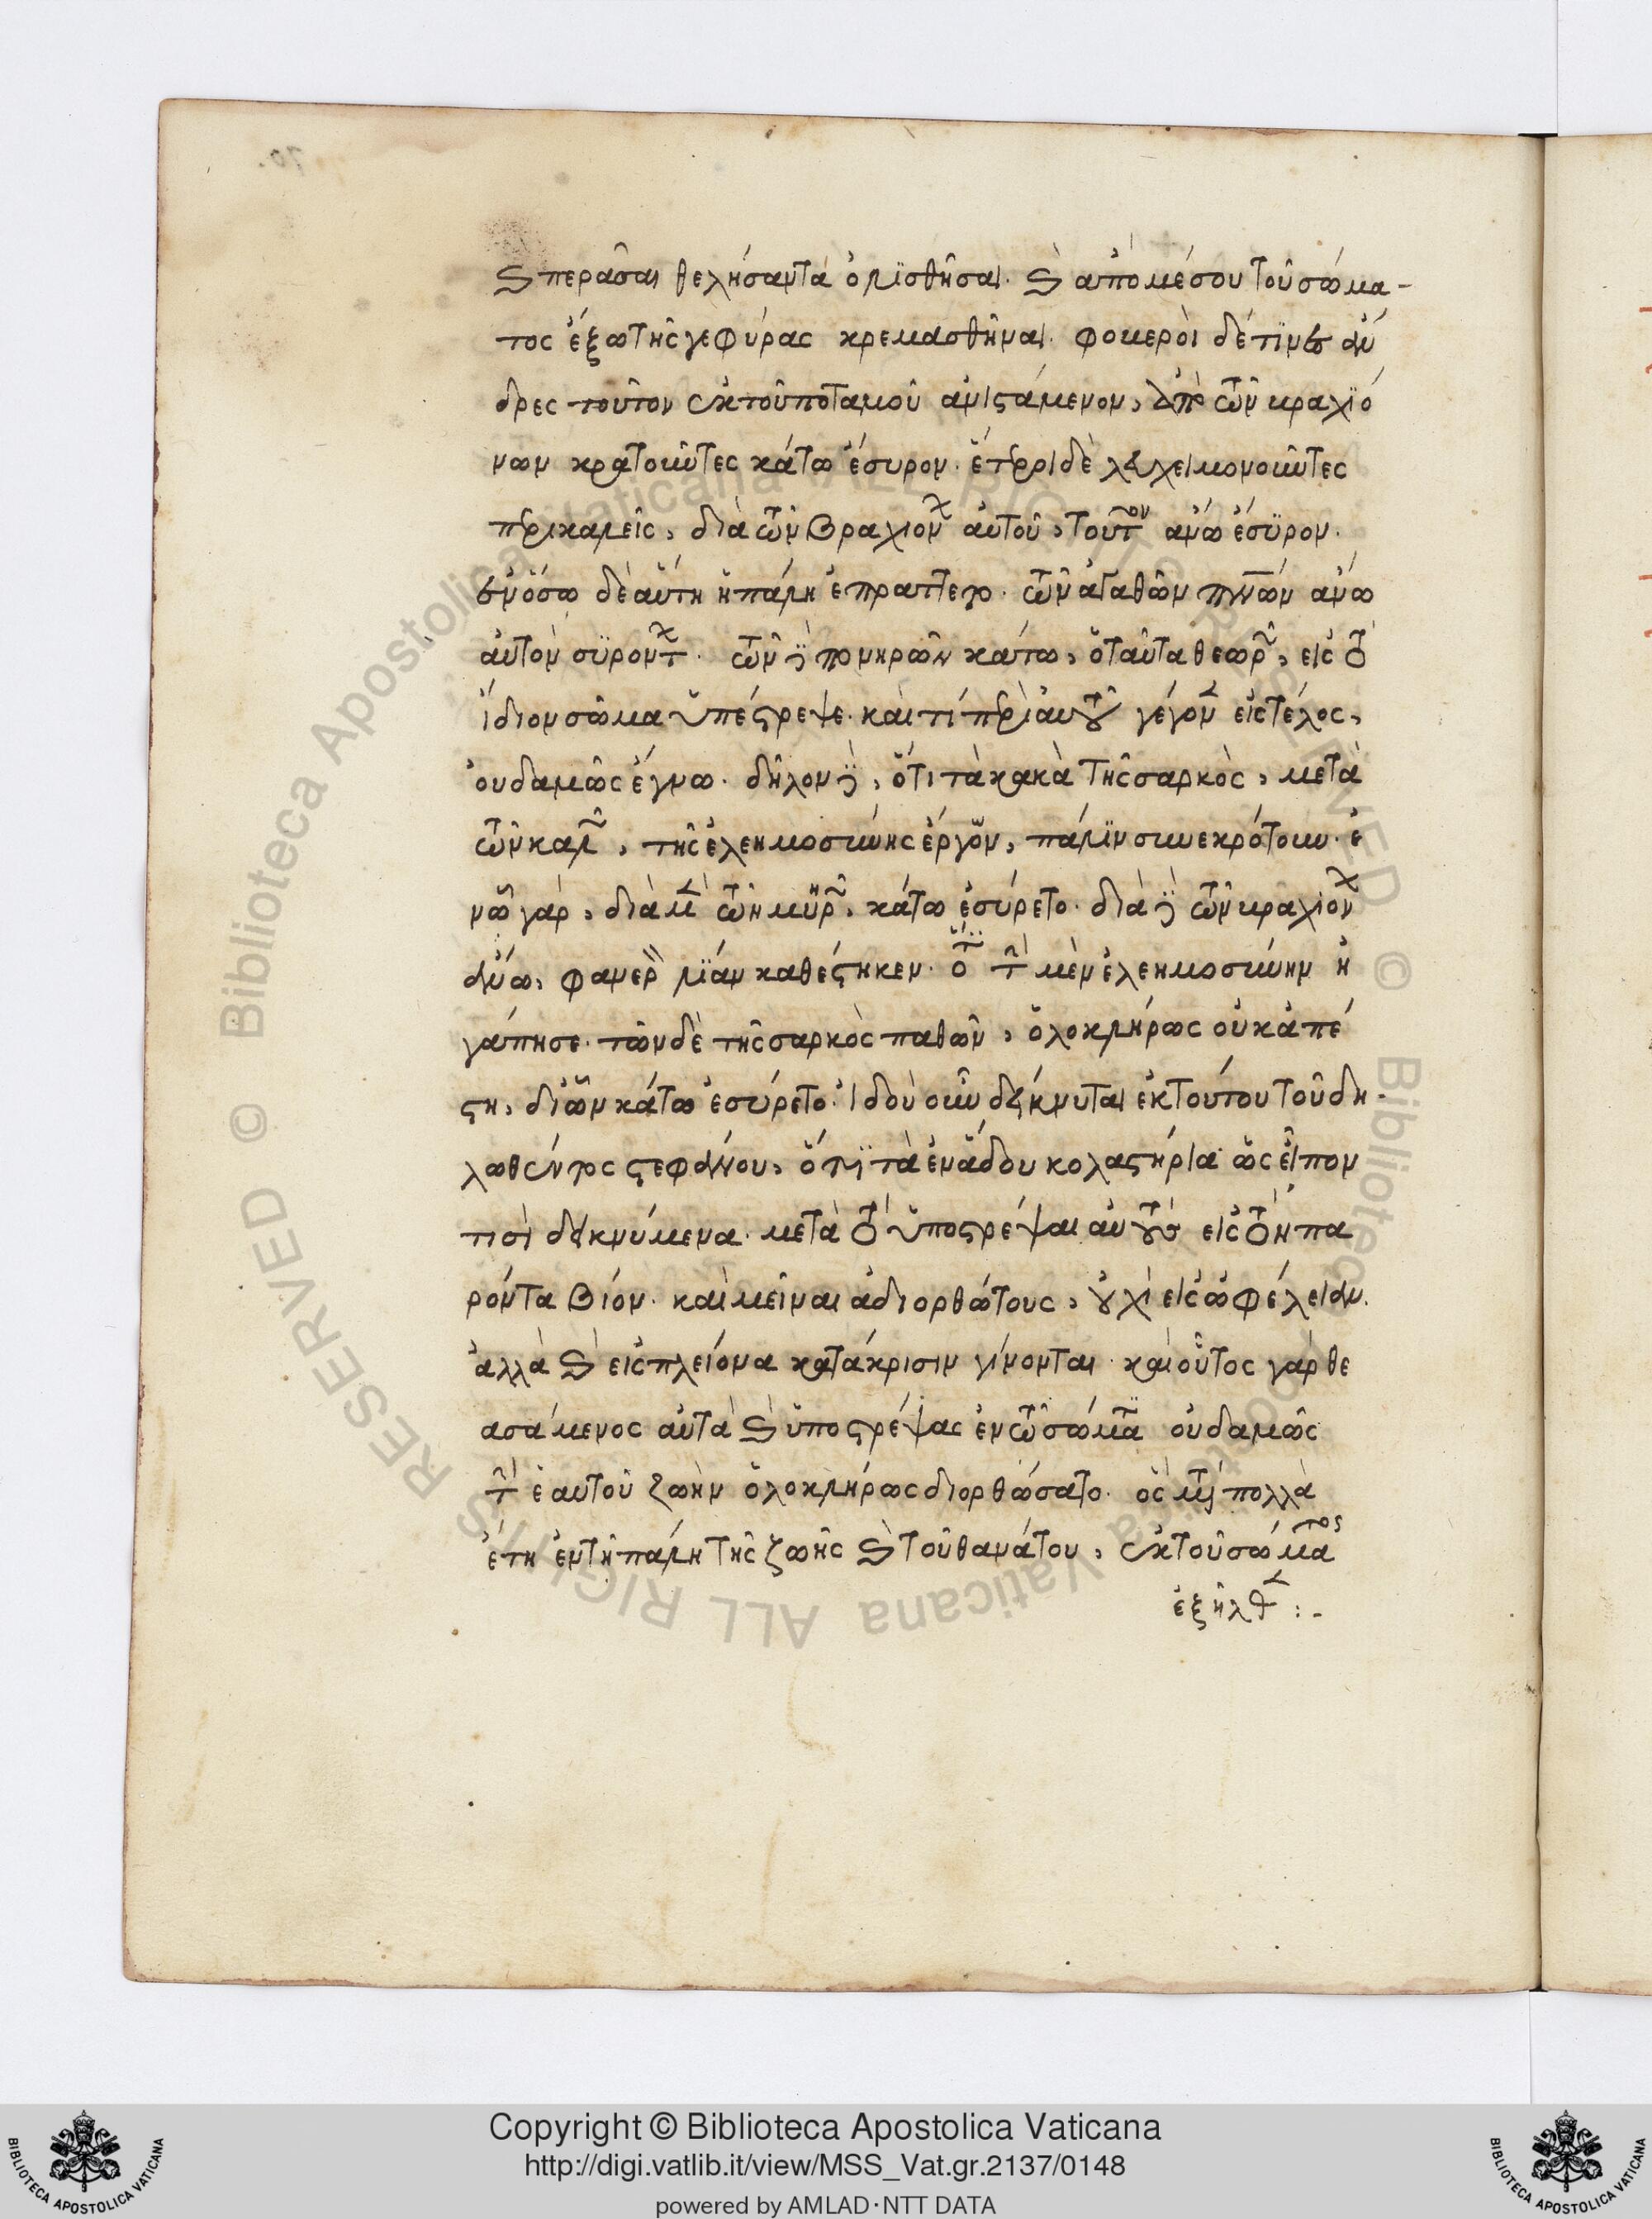 καὶ περᾶσαι θελήσαντα ὀλισθῆσαι. καὶ ἀπὸ μέσου τοῦ σώμα-
τος ἔξω τῆς γεφύρας κρεμασθῆναι. φοβεροὶ δέ τινες ἄν
δρες τοῦτον ἐκ τοῦ ποταμοῦ ἀνιστάμενοι, ἀπὸ τῶν βραχιό
νων κρατοῦντες κάτω ἔσυρον. ἕτεροι δὲ λευχειμονοῦντες
περικαλεῖς, διὰ τῶν βραχιόνων αὐτοῦ, τοῦτον ἄνω ἔσυρον.
ἐν ὅσω δὲ αὕτη ἡ πάλη ἐπράττετο. τῶν ἀγαθῶν πνων ἄνω
αὐτὸν συρόντων. τῶν δὲ πονηρῶν κάτω, ὁ ταῦτα θεωρῶν, εἰς τὸ
ἴδιον σῶμα ὑπέστρεψε. καὶ τί περὶ αὐτοῦ γέγονεν εἰς τέλος,
οὐδαμῶς ἔγνω. δῆλον δὲ, ὅτι τὰ κακὰ τῆς σαρκὸς, μετὰ
τῶν καλῶν, τῆς ἐλεημοσύνης ἔργων, πάλιν συνεκρότουν. ἐ
νῶ γὰρ, διὰ μὲν τῶν μηρῶν κάτω ἐσύρετο. διὰ δὲ τῶν βραχιόνων
ἄνω, φανερὸν λίαν καθέστηκεν. ὅτι τὴν μὲν ἐλεημοσύνην ἠ
γάπησε. τῶν δὲ τῆς σαρκὸς παθῶν, ὁλοκλήρως οὐκ ἀπέ
στη, δι' ὧν κάτω ἐσύρετο. ἰδοὺ οὖν δείκνυται ἐκ τούτου τοῦ δη-
λωθέντος στεφάνου, ὅτι τὰ ἐν ἅδου κολαστήρια ὡς εἶπον
τισὶ δεικνύμενα. μετὰ τὸ ὑποστρέψαι αὐτοὺς εἰς τὸν πα
ρόντα βίον. καὶ μεῖναι ἀδιορθώτους, οὐχὶ εἰς ὠφέλειαν.
ἀλλὰ καὶ εἰς πλείονα κατάκρισιν γίνονται. καὶ οὗτος γὰρ θε
ασάμενος αὐτὰ καὶ ὑποστρέψας ἐν τῶ σώματι οὐδαμῶς
τὴν ἑαυτοῦ ζωὴν ὁλοκλήρως διορθώσατο. ὃς μετὰ πολλὰ
ἔτη ἐν τῆ πάλη τῆς ζωῆς καὶ τοῦ θανάτου, ἐκ τοῦ σώματος
ἐξῆλθεν :-
© Biblioteca Apostolica Vaticana ALL RIGHTS RESERVED
© Biblioteca Apostolica Vaticana ALL RIGHTS RESERVED
Copyright © Biblioteca Apostolica Vaticana
http://digi.vatlib.it/view/MSS_Vat.gr.2137/0148
powered by AMLAD·NTT DATA
BIBLIOTECA APOSTOLICA VATICANA
BIBLIOTECA APOSTOLICA VATICANA